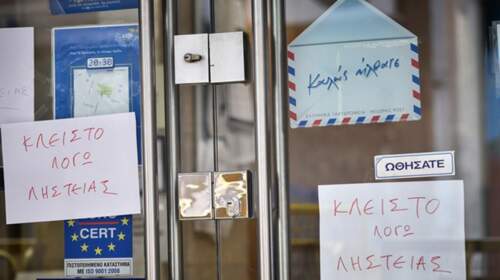 ΚΛΕΙΣΤΟ
ΛΟΓΩ
ΛΗΣΤΕΙΑΣ
CERT
ΠΙΣΤΟΠΟΙΗΜΕΝΟ ΚΑΤΑΣΤΗΜΑ
ΜΕ ISO 9001:2008
Καλώς ήλθατε
ΩΘΗΣΑΤΕ
ΚΛΕΙΣΤΟ
ΛΟΓΩ
ΛΗΣΤΕΙΑΣ